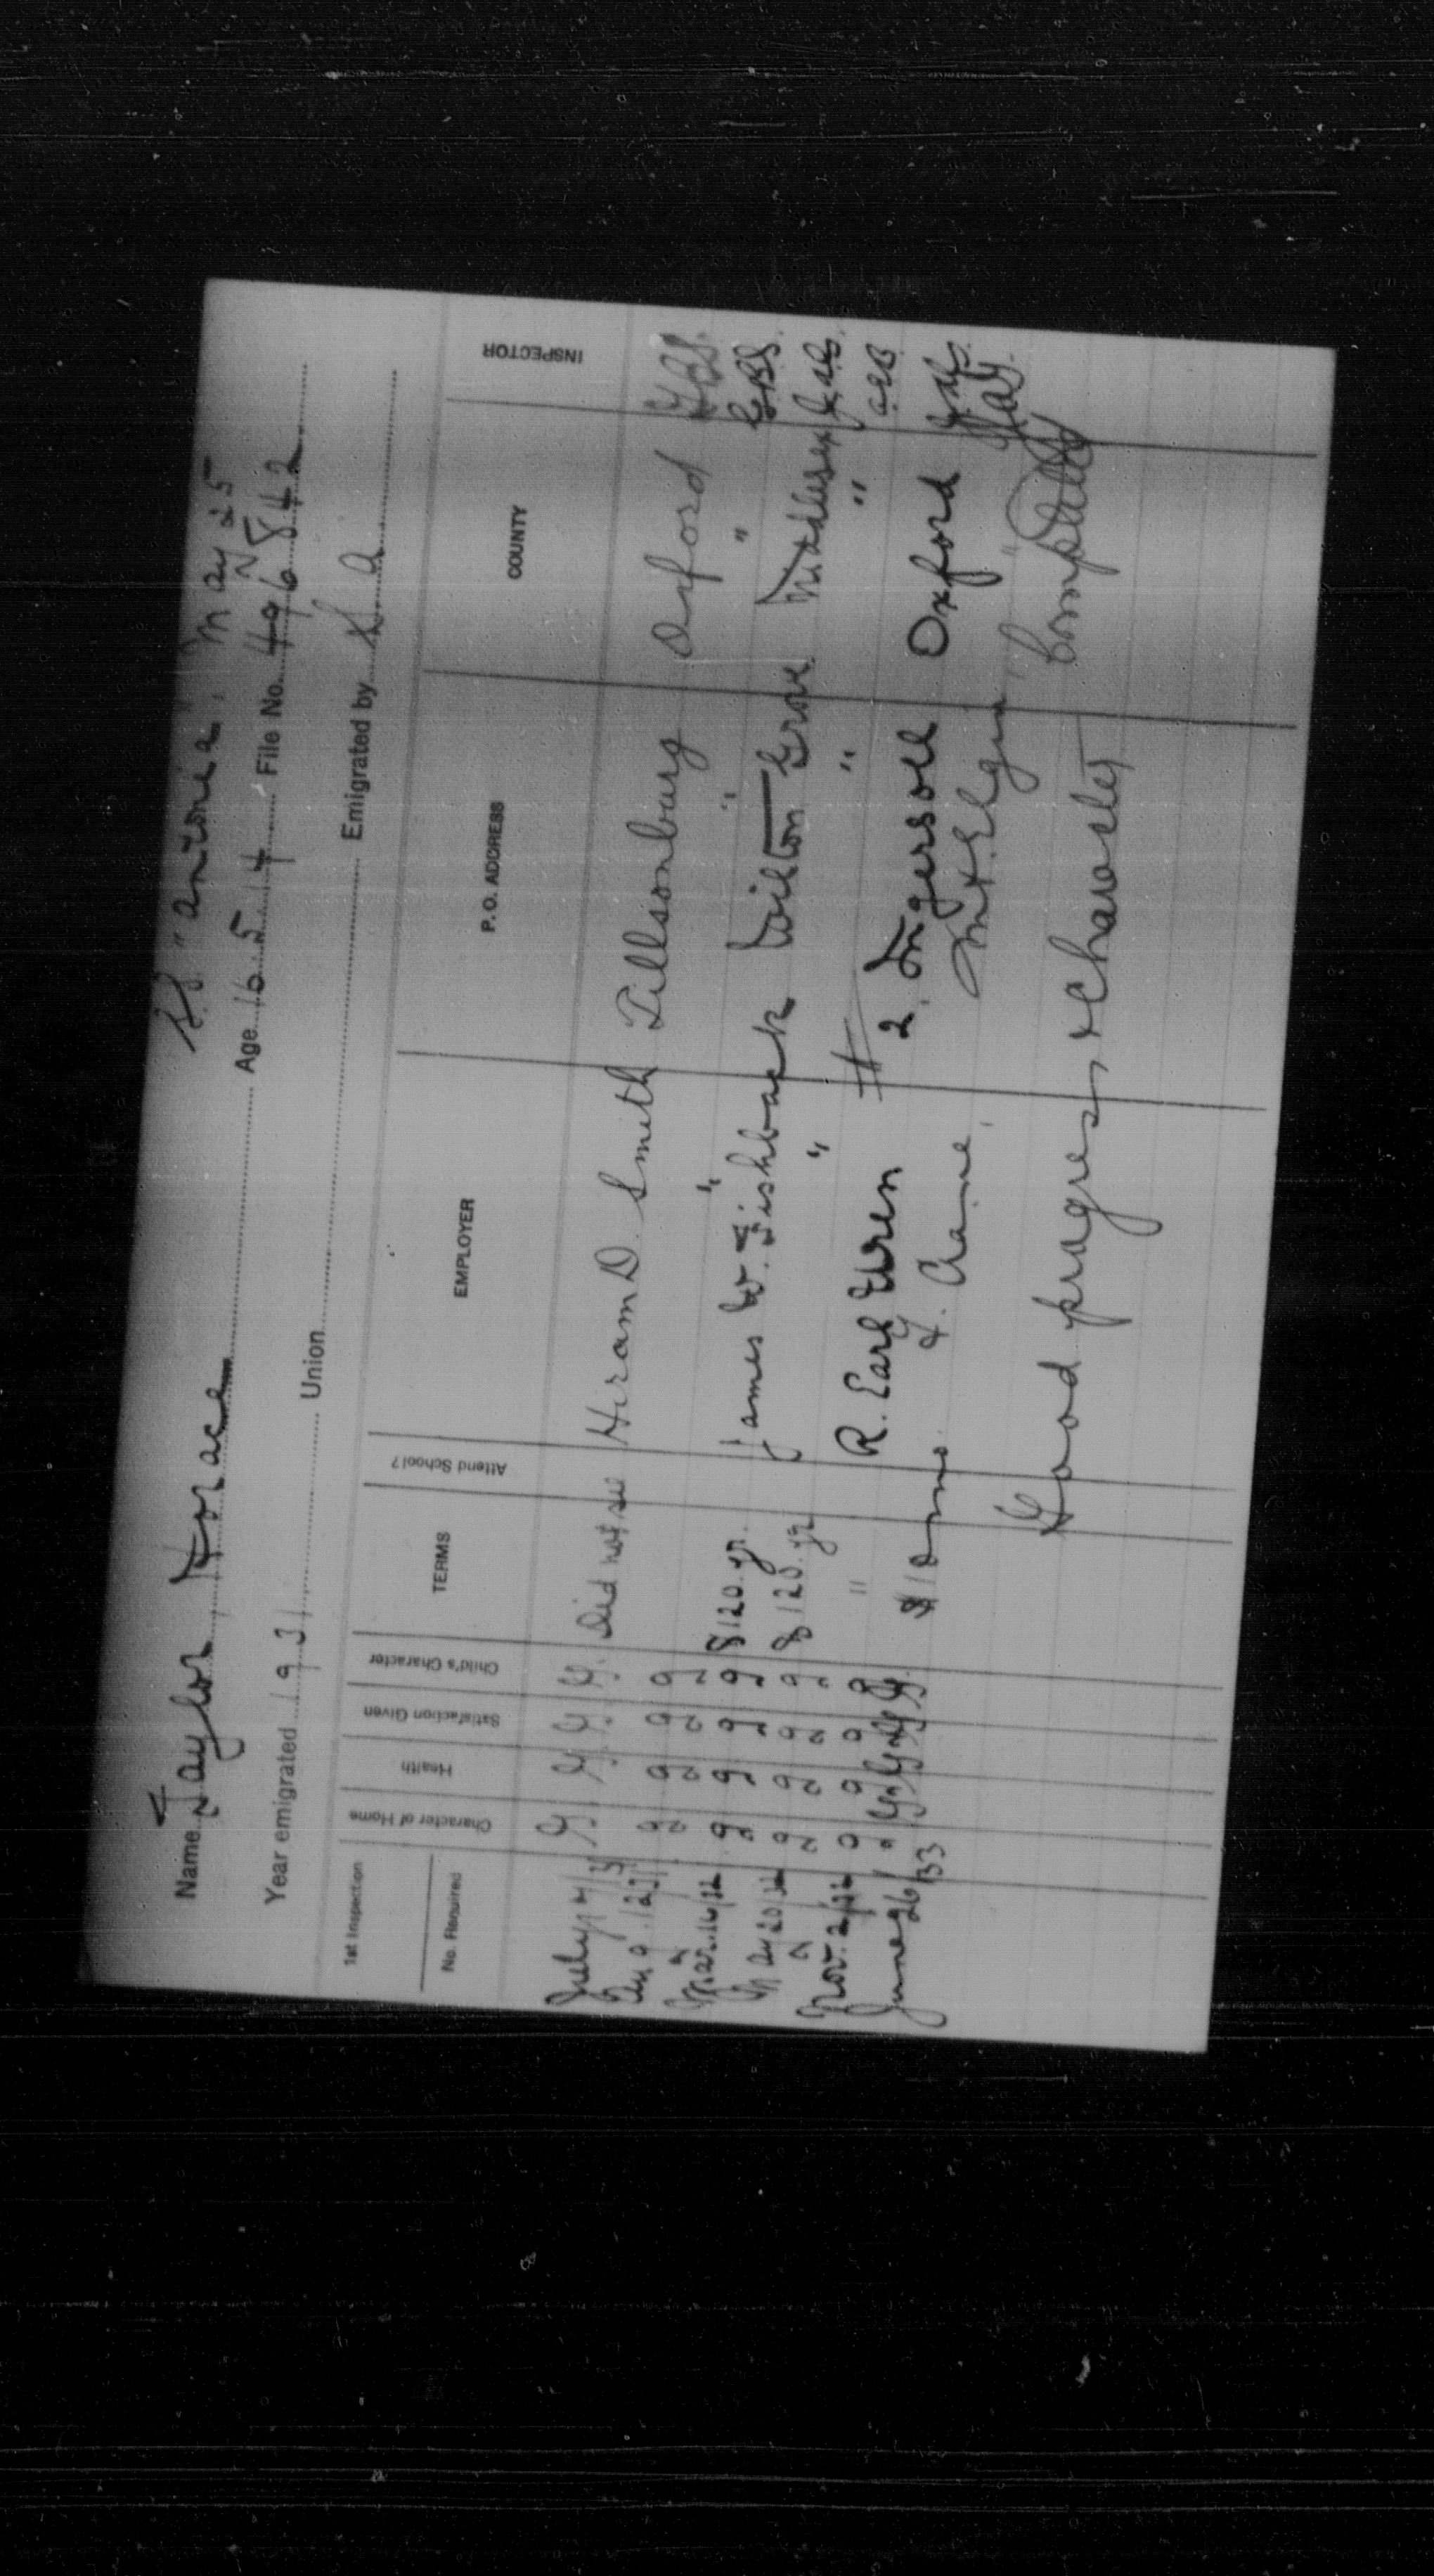 SS "Antonia", May 25
Name Taylor, Horace Age 16.5.14 File No. 496842
Year emigrated 1931 Union Emigrated by S.A.
1st Inspection
No. Required
Character of Home Health Satisfaction Given Child's Character TERMS Attend School? EMPLOYER P. O. ADDRESS COUNTY INSPECTOR
July 14/31 G G G G. Did not see Hiram D. Smith Tillsonburg Oxford G.B.S.
Aug. 12/31 g g g g " " " G.B.S.
Mar. 16/32 g g g g $120. yr. James W. Fishback Wilton Grove Middlesex
May 20/32 g g g g $120. yr " " "
Nov. 2/32 g g g g " R. Earl Wren # 2. Ingersoll Oxford
June 26/33 " G G G $10 mo. Mt Elgin "
Good progress & character Completed